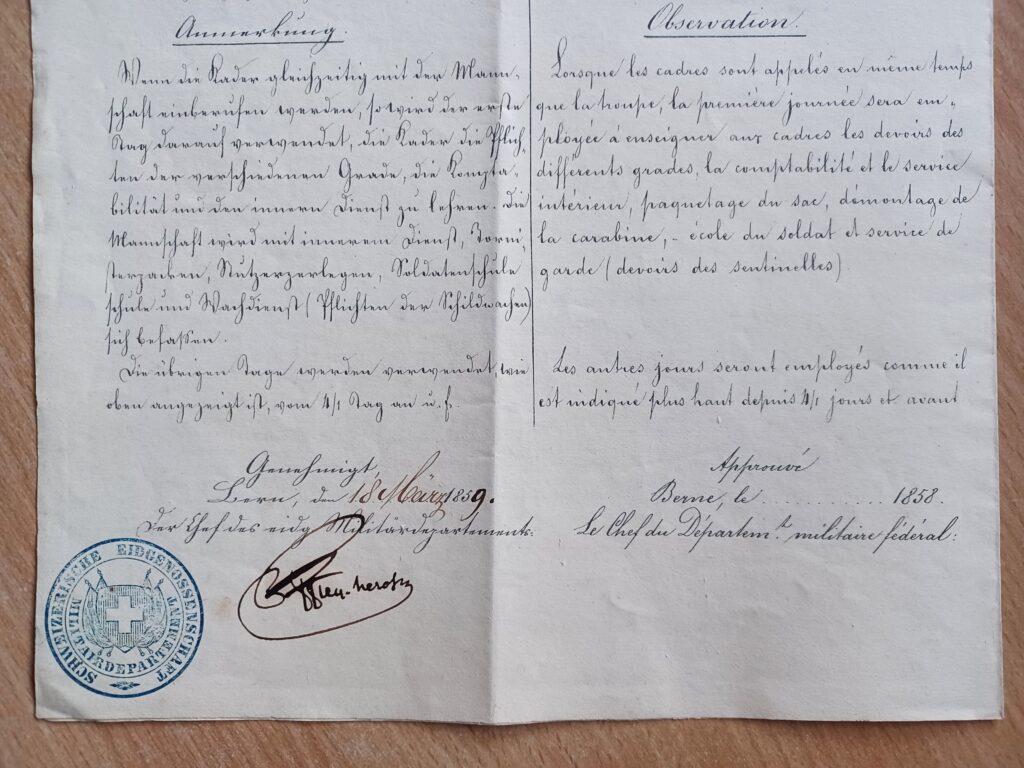 Anmerkung.
Wenn die Kader gleichzeitig mit der Mann-
schaft einberufen werden, so wird der erste
Tag darauf verwendet, die Kader die Pflich-
ten der verschiedenen Grade, die Kompta-
bilität und den innern Dienst zu lehren. Die
Mannschaft wird mit innerem Dienst, Torni-
sterpacken, Stutzerzerlegen, Soldatenschule
schule und Wachdienst (Pflichten der Schildwachen)
sich befassen.
Die übrigen Tage werden verwendet, wie
oben angezeigt ist, vom 4/1 Tag an u. f.
Genehmigt,
Bern, den 18 März 1859.
Der Chef des eidg Militärdepartements:
SCHWEIZERISCHE EIDGENOSSENSCHAFT
MILITAIRDEPARTEMENT
Observation.
Lorsque les cadres sont appelés en même temps
que la troupe, la première journée sera em-
ployée à enseigner aux cadres les devoirs des
différents grades, la comptabilité et le service
intérieur, paquetage du sac, démontage de
la carabine, - école du soldat et service de
garde (devoirs des sentinelles)
Les autres jours seront employés comme il
est indiqué plus haut depuis 4/1 jours et avant
Approuvé
Berne, le .................. 1858.
Le Chef du Départem.t militaire fédéral: